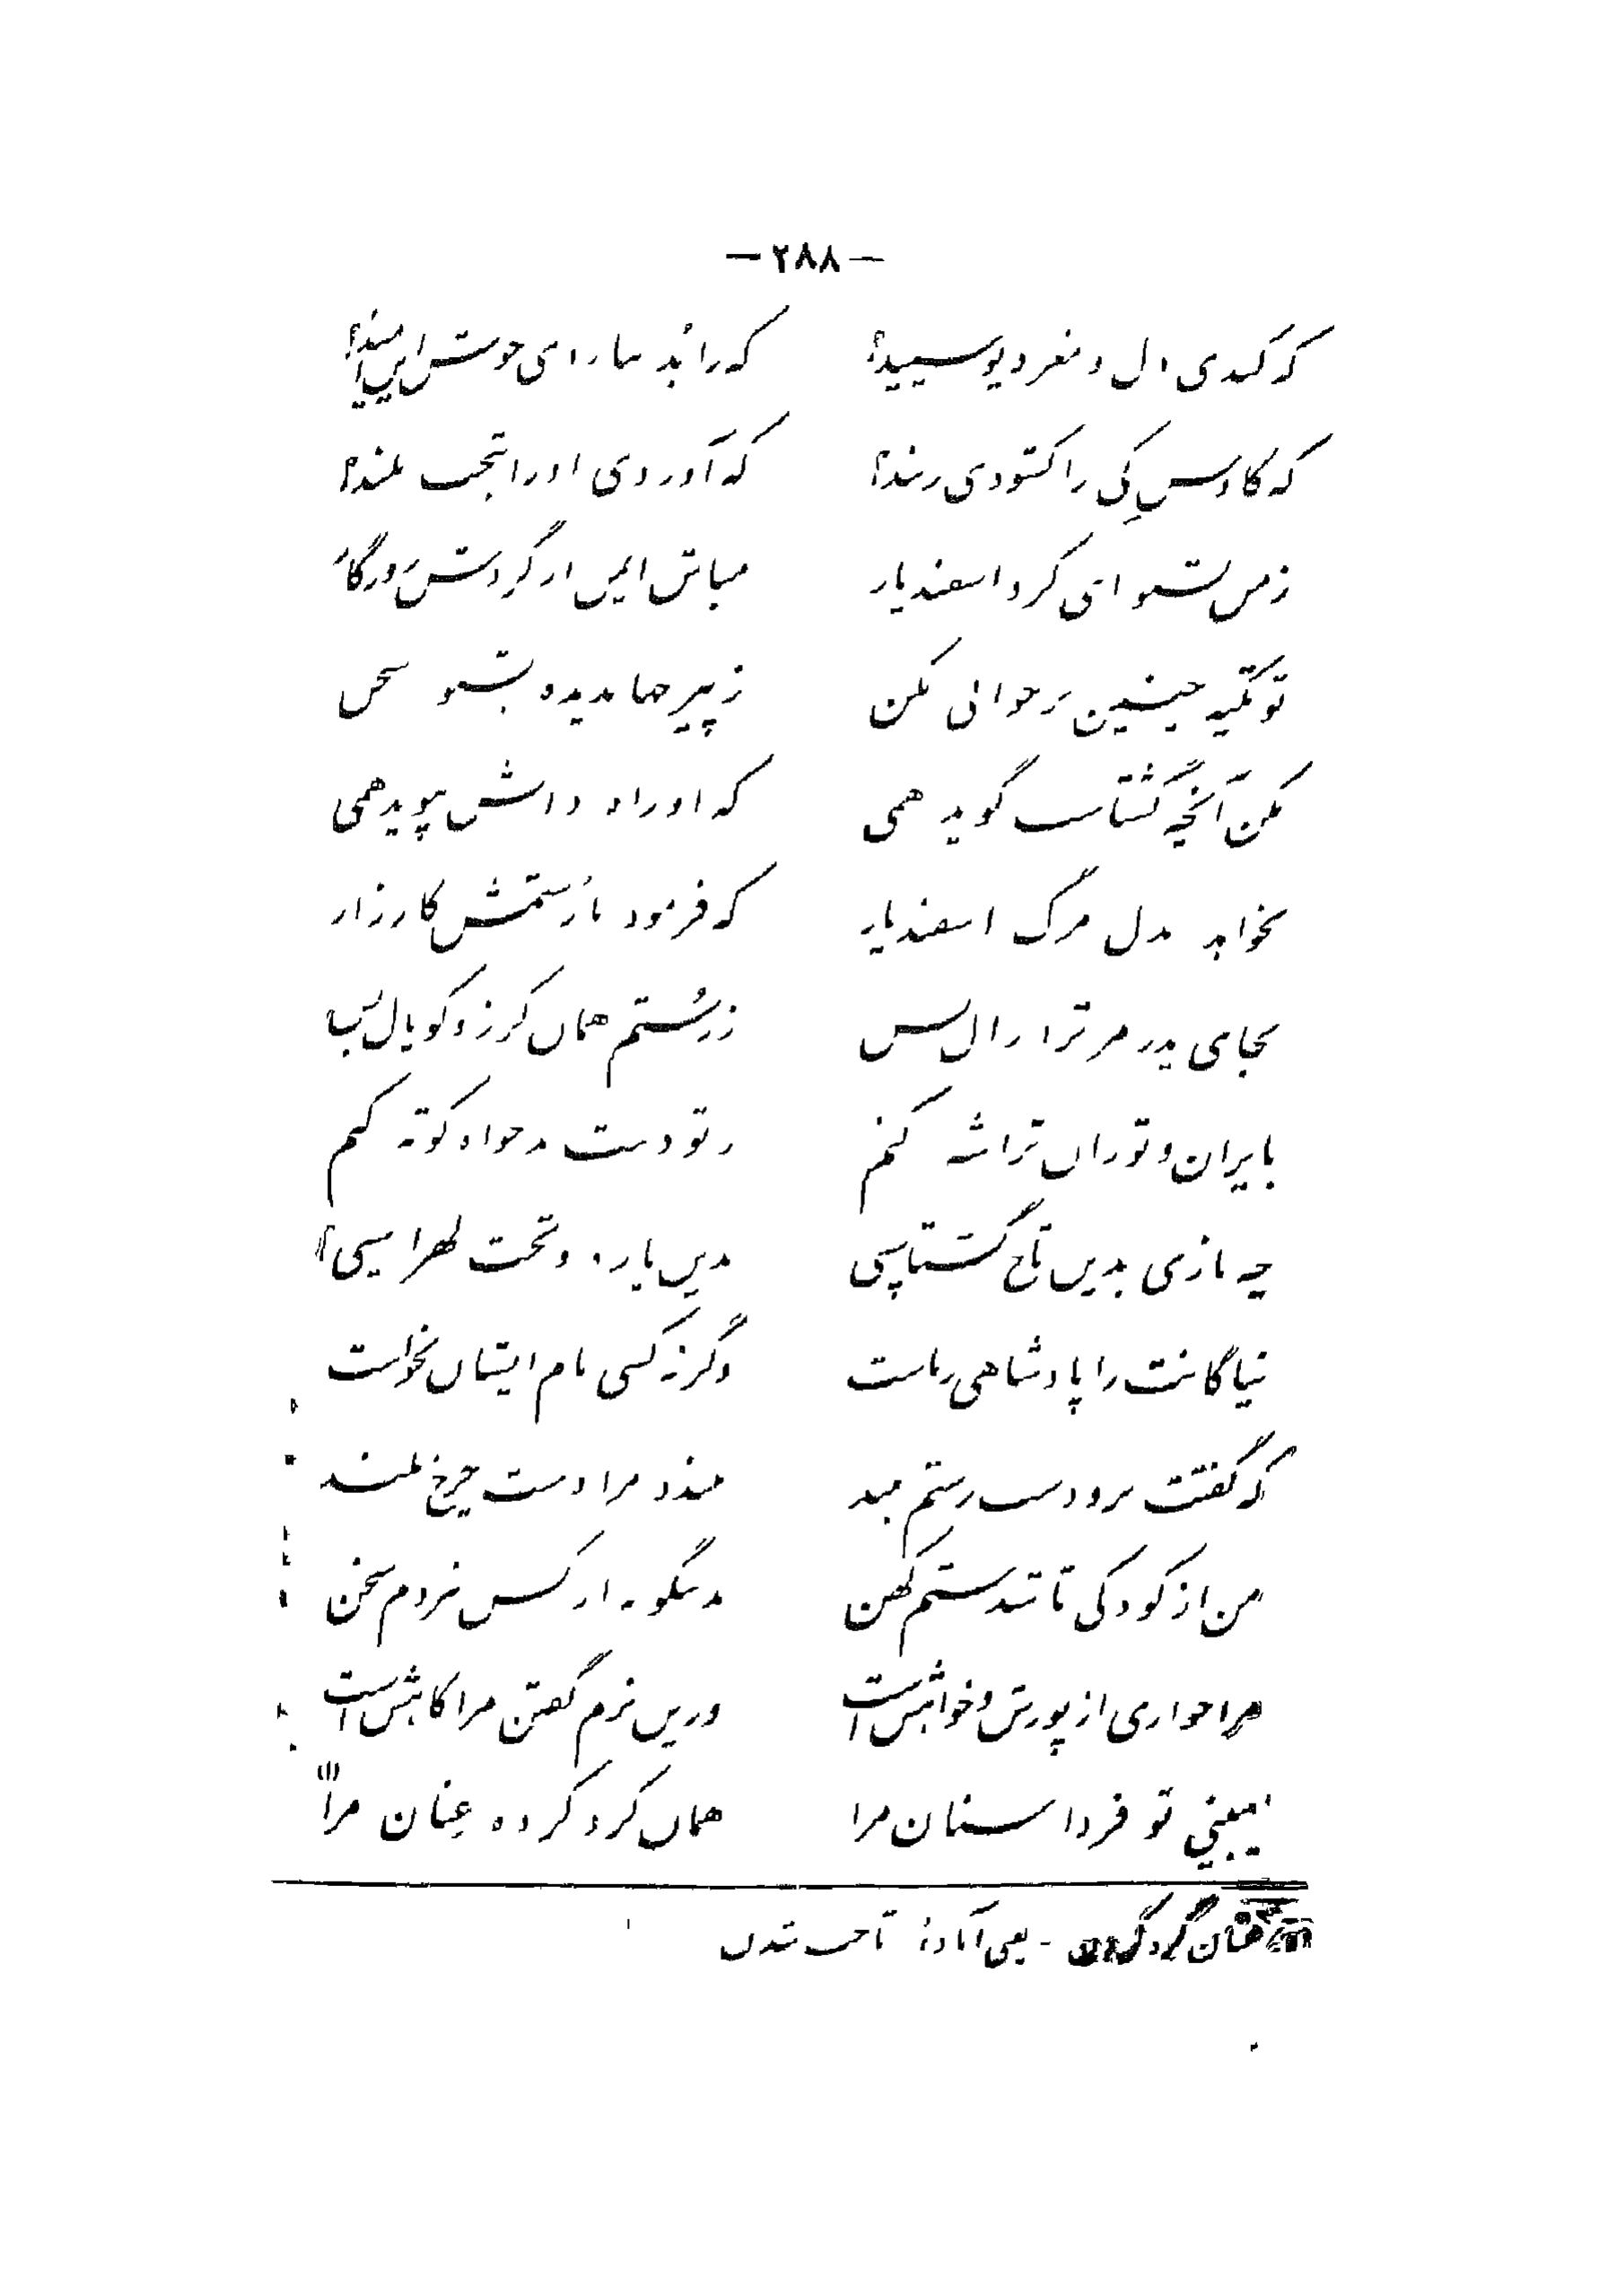 — ۲۸۸ —
که کندی دل و مغز دیو سپید؟ که را بُد ببازوی خویش این امید؟
که کاوسِ کی را گشودی ز بند؟ که آوردی او را بتخت بلند؟
ز من بشنو ای گرد اسفندیار مباش ایمن از گردش روزگار
تو تکیه چنین بر جوانی مکن ز پیر جهاندیده بشنو سخن
مکن آنچه گشتاسب گوید همی که او راه دانش نپوید همی
بخواهد بدل مرگ اسفندیار که فرمود با رُستمش کارزار
بجای پدر مر ترا زال بس ز رُستم همان گرز و کوپال بس
بایران و توران ترا شه کنم ز تو دست بدخواه کوته کنم
چه نازی بدین تاج گشتاسپی بدین یاره و تخت لهراسپی؟
نیاگانت را پادشاهی ز ماست وگرنه کسی نام ایشان نخواست
که گفتت برو دست رستم ببند نبندد مرا دست چرخ بلند
من از کودکی تا شدستم کهن بدینگونه از کس نبردم سخن
مرا خواری از پوزش و خواهش است وزین نرم گفتن مرا کاهش است
ببینی تو فردا سنان مرا همان گرد کرده عنان مرا (۱)
(۱) عنان گرد کردن - یعنی آمادهٔ تاخت شدن